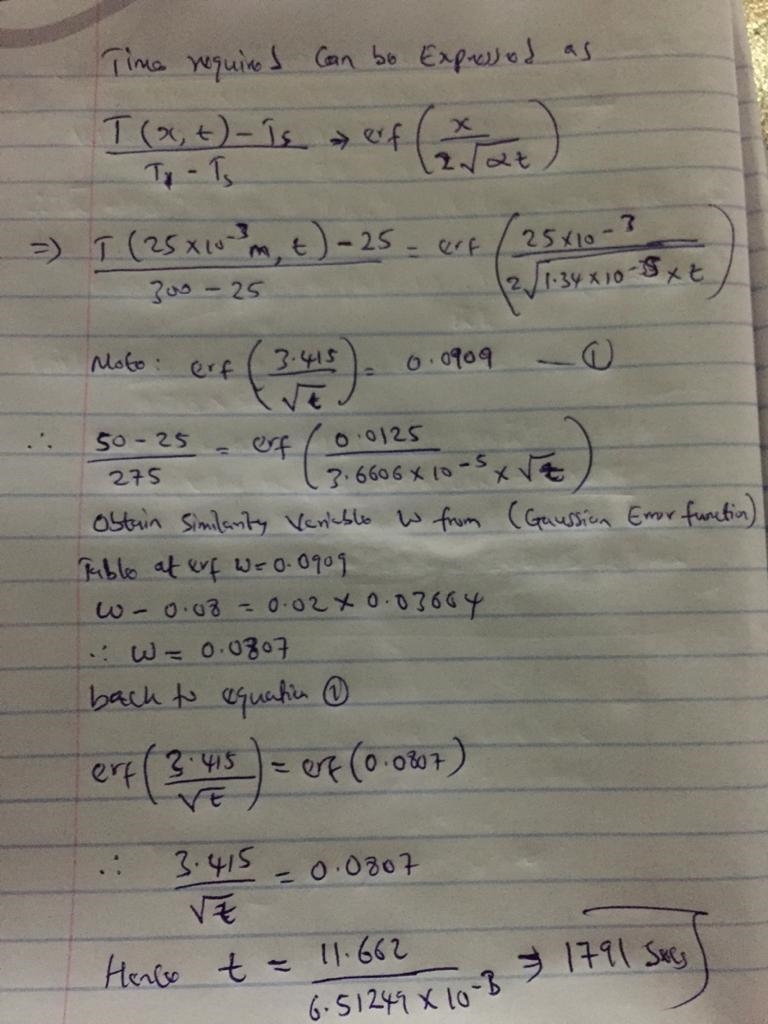 Time required Can be Expressed as
T(x,t) - Ts / Ti - Ts => erf (x / 2√αt)
=> T(25x10^-3 m, t) - 25 / 300 - 25 = erf (25x10^-3 / 2√1.34x10^-5 x t)
Note: erf (3.415 / √t) = 0.0909 — ①
∴ 50 - 25 / 275 = erf (0.0125 / 3.6606 x 10^-5 x √t)
Obtain Similarity Variable W from (Gaussian Error function)
Table at erf W = 0.0909
W - 0.08 = 0.02 x 0.03664
∴ W = 0.0807
back to equation ①
erf (3.415 / √t) = erf (0.0807)
∴ 3.415 / √t = 0.0807
Hence t = 11.662 / 6.51249 x 10^-3 => 1791 Secs